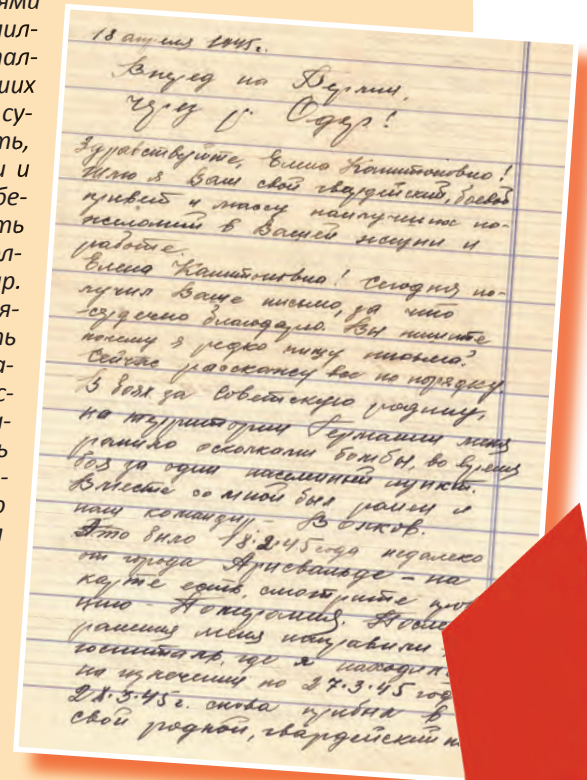 ями
мил-
тал-
ших
су-
ть,
и и
бе-
ть
ол-
ир.
я-
ть
а-
с-
и-
ь
-
о
и
18 апреля 1945г.
Вперед на Берлин,
через р. Одер!
Здравствуйте, Елена Капитоновна!
Шлю я Вам свой гвардейский, боевой
привет и массу наилучших по-
желаний в Вашей жизни и
работе.
Елена Капитоновна! Сегодня по-
лучил Ваше письмо, за что
сердечно благодарю. Вы пишите
почему я редко пишу письма?
Сейчас расскажу все по порядку
В боях за Советскую родину,
на территории Германии меня
ранило осколками бомбы, во время
боя за один населенный пункт.
Вместе со мной был ранен и
наш командир Волков.
Это было 18.2.45 года недалеко
от города Арнсвальде – на
карте есть, смотрите
- Померания. После
ранения меня направили
госпиталь, где я находил
на излечении по 27.3.45 год
28.3.45 г. снова прибыл в
свой родной, гвардейский